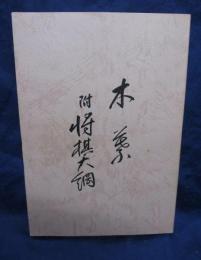 木
附 将棋大綱